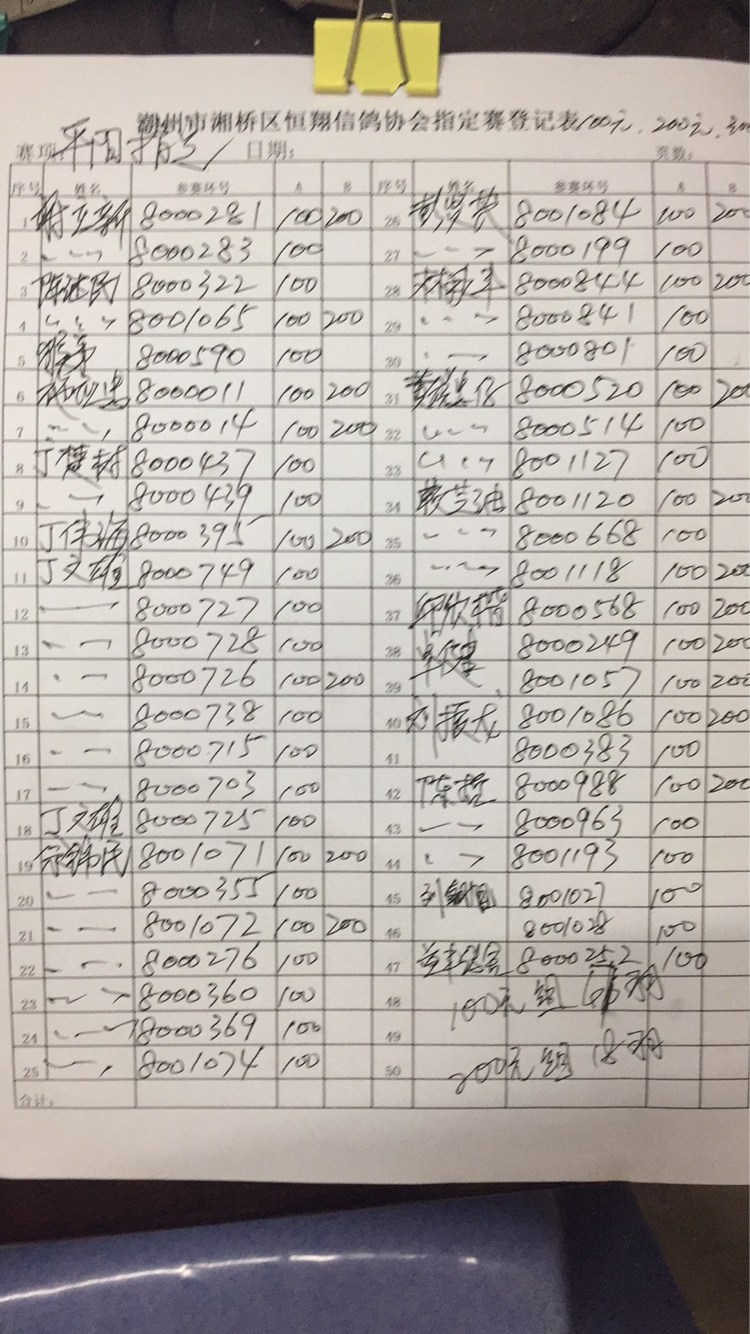 潮州市湘桥区恒翔信鸽协会指定赛登记表 100元. 200元.
赛项: 日期: 页数:
序号 姓名 参赛环号 A B 序号 姓名 参赛环号 A B
1 谢立新 8000281 100 200 26 8001084 100 200
2 〃 8000283 100 27 〃 8000199 100
3 8000322 100 28 8000844 100 200
4 〃 8001065 100 200 29 〃 8000841 100
5 8000590 100 30 〃 8000801 100
6 8000011 100 200 31 8000520 100 200
7 〃 8000014 100 200 32 〃 8000514 100
8 丁楚树 8000437 100 33 〃 8001127 100
9 〃 8000439 100 34 8001120 100 200
10 丁 8000395 100 200 35 〃 8000668 100
11 丁文雄 8000749 100 36 〃 8001118 100 200
12 〃 8000727 100 37 8000568 100 200
13 〃 8000728 100 38 8000249 100 200
14 〃 8000726 100 200 39 8001057 100 200
15 〃 8000738 100 40 刘 8001086 100 200
16 〃 8000715 100 41 8000383 100
17 〃 8000703 100 42 陈 8000988 100 200
18 丁文雄 8000725 100 43 〃 8000963 100
19 8001071 100 200 44 〃 8001193 100
20 〃 8000355 100 45 8001027 100
21 〃 8001072 100 200 46 8001028 100
22 〃 8000276 100 47 8000252 100
23 〃 8000360 100 48 100元组 羽
24 〃 8000369 100 49
25 〃 8001074 100 50 200元组 18羽
合计: